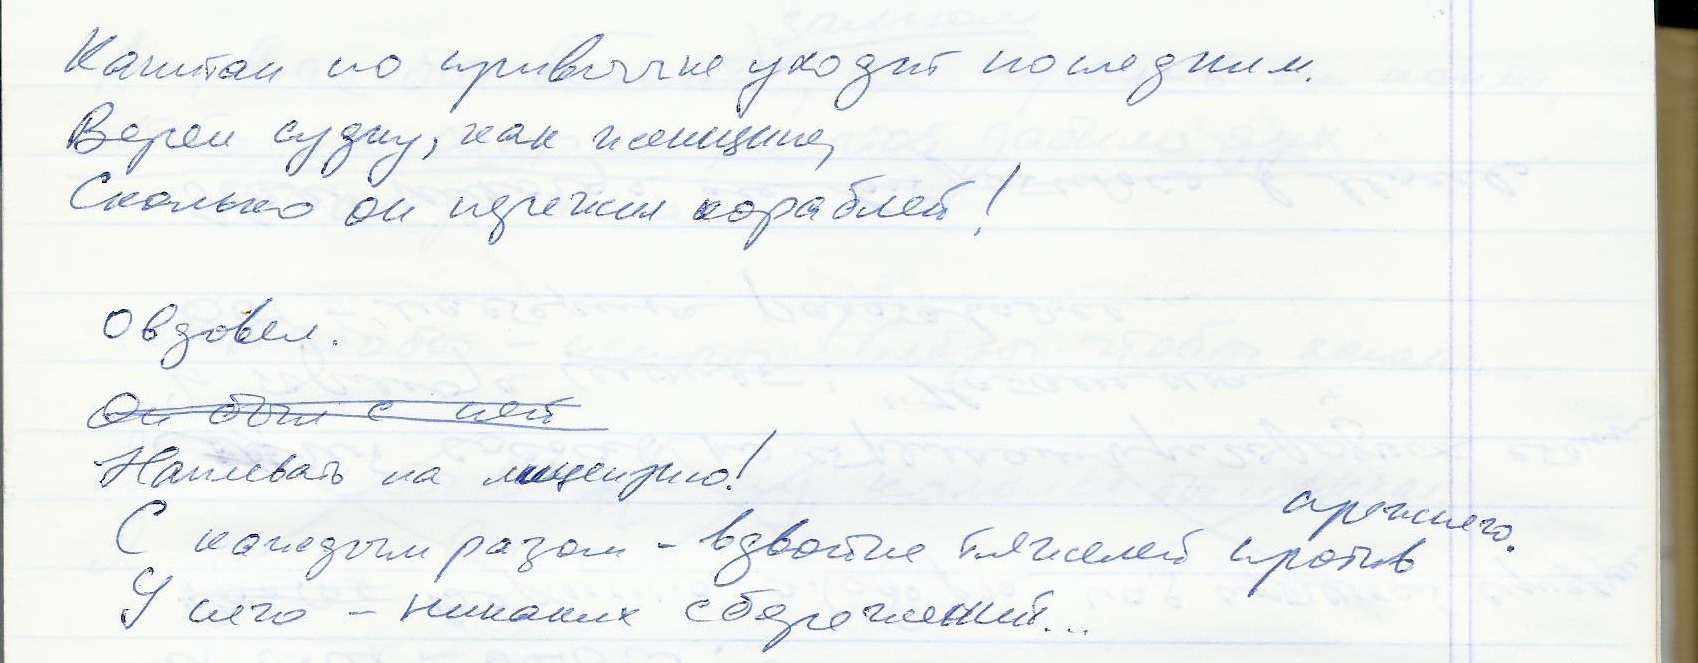 Капитан по привычке уходит последним.
Верен судну, как женщине,
Сколько он пережил кораблей!
Овдовел.
Он был с ней
Наплевать на лицензию!
С каждым разом – вдвойне тяжелей против прежнего.
У него – никаких сбережений...